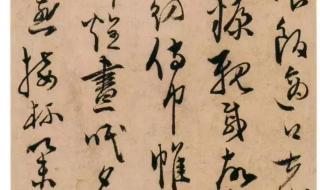 飯適口充
糠親戚故
紡侍巾帷
煌晝眠夕
讌接杯舉